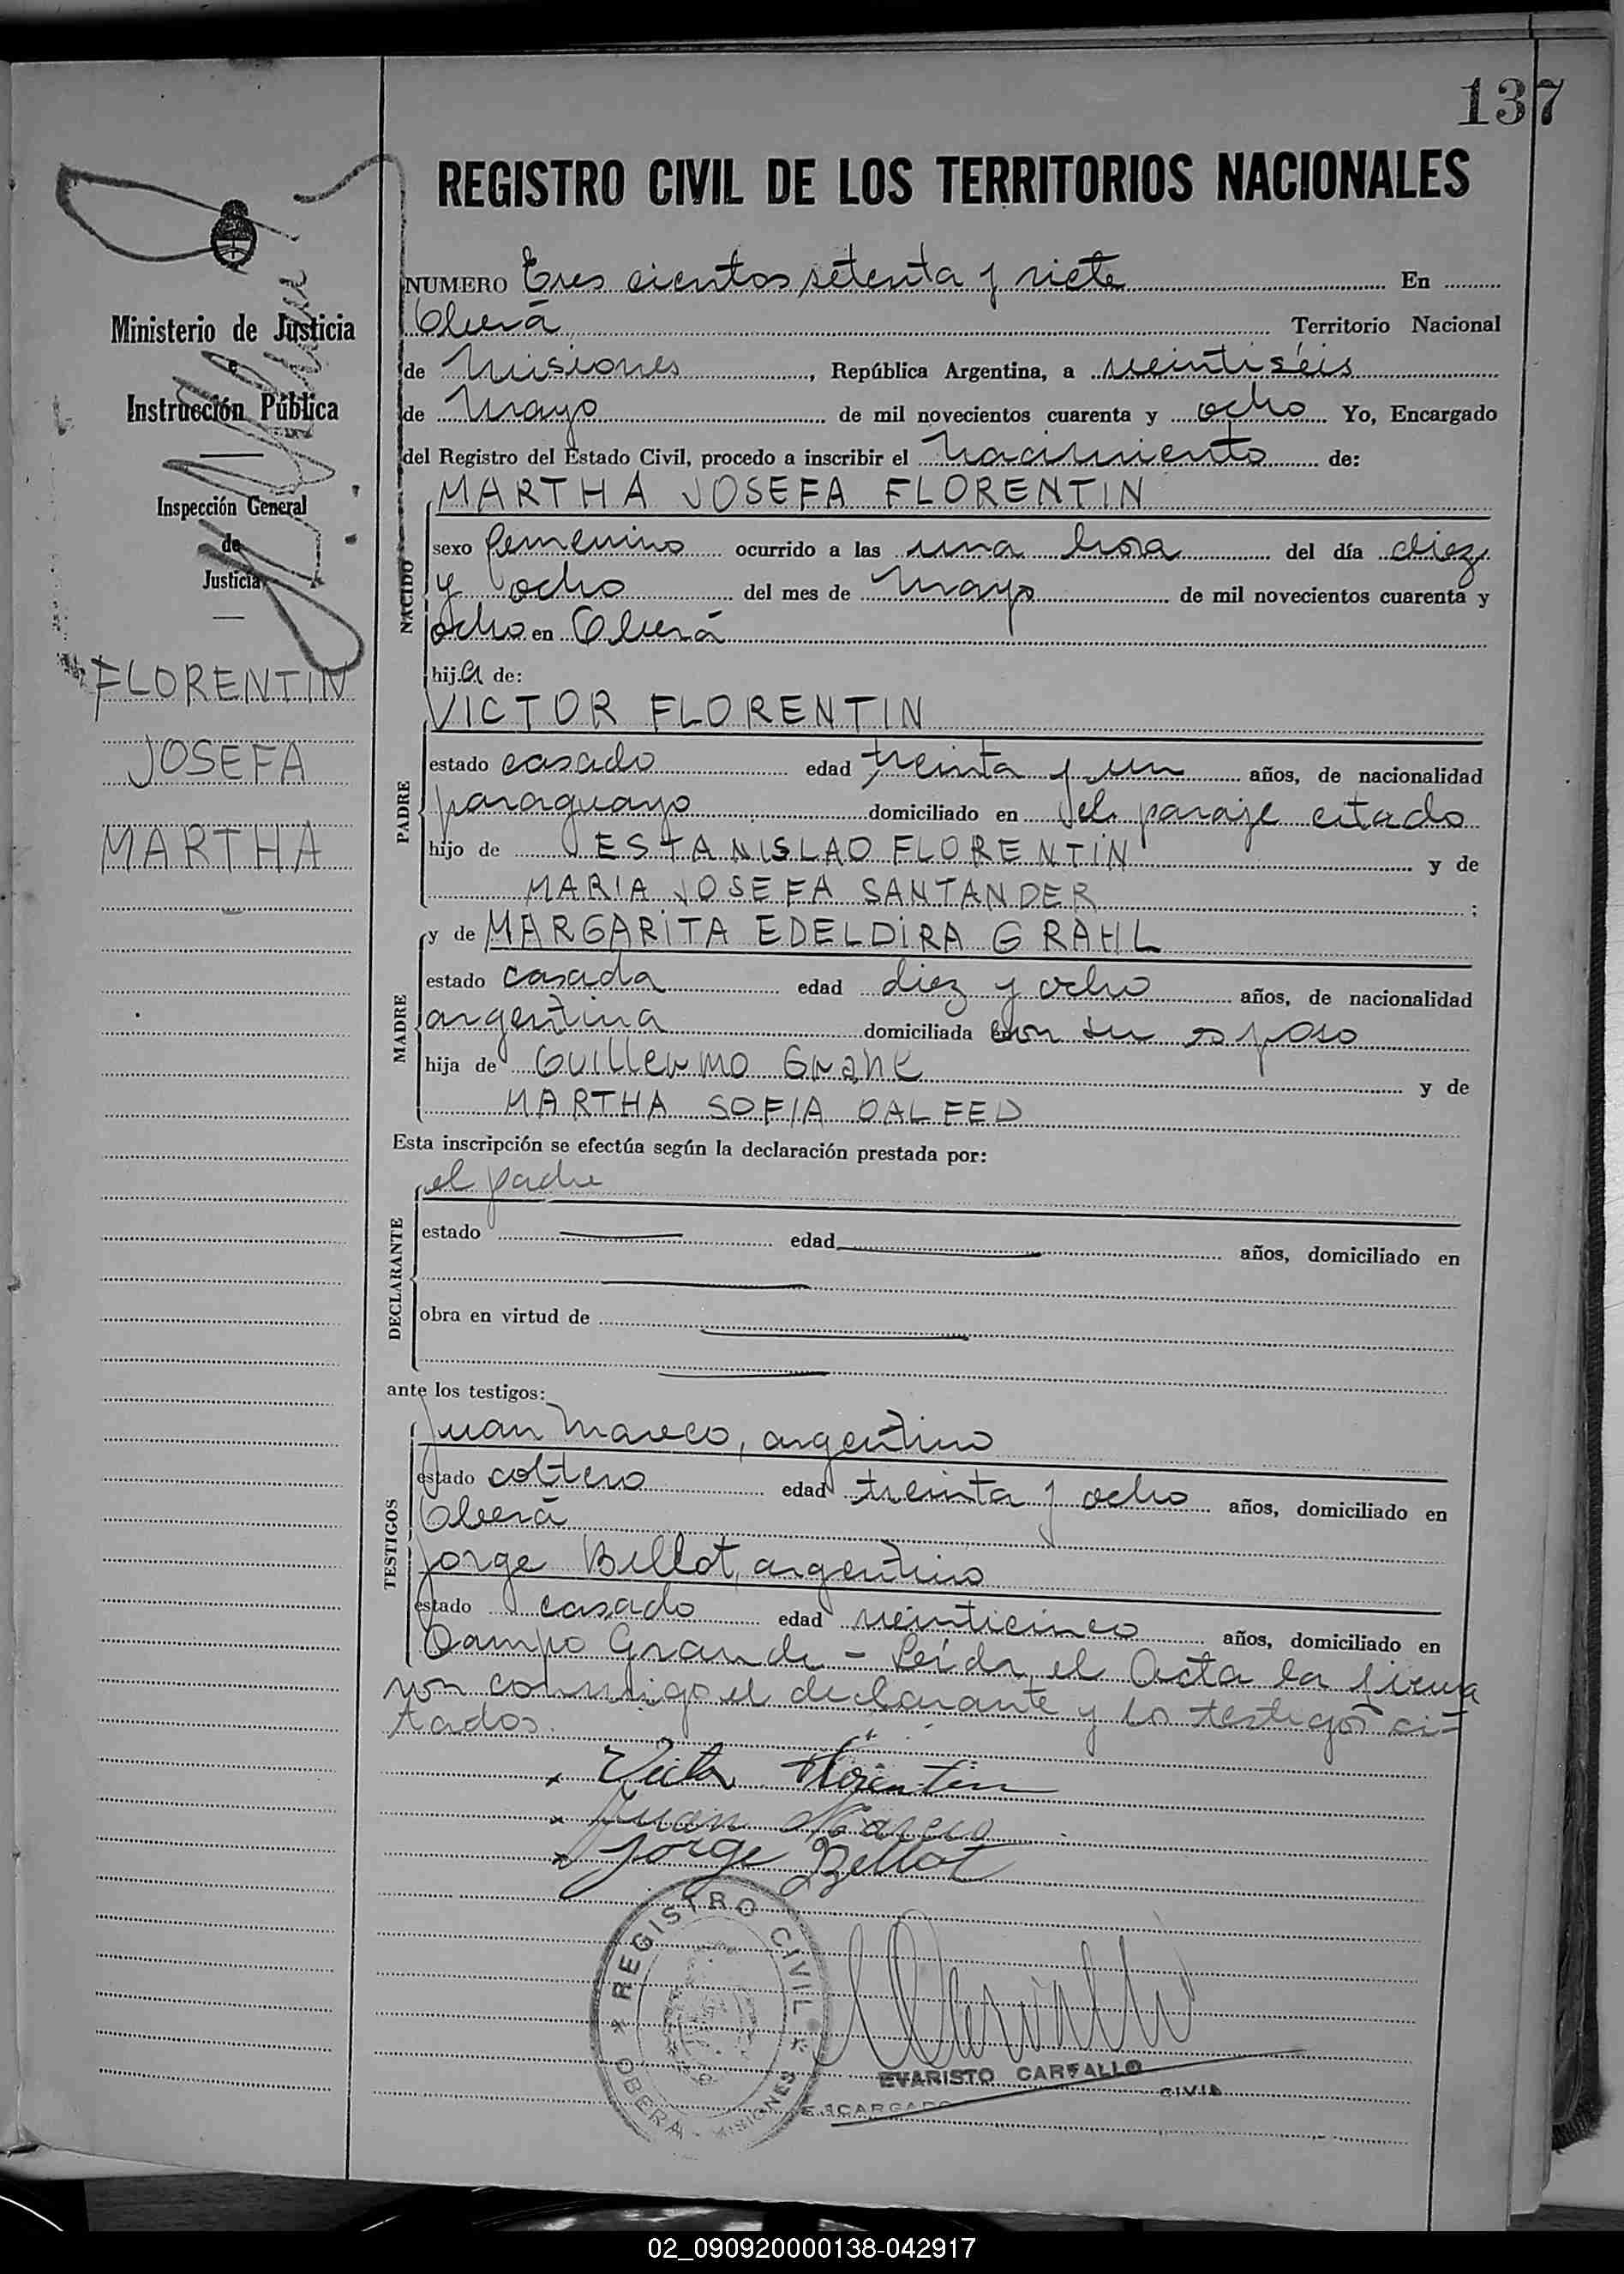 137
REGISTRO CIVIL DE LOS TERRITORIOS NACIONALES
Ministerio de Justicia
e
Instrucción Pública
Inspección General
de
Justicia
FLORENTIN
JOSEFA
MARTHA
NUMERO Tres cientos setenta y siete En
Oberá Territorio Nacional
de Misiones, República Argentina, a veintiséis
de Mayo de mil novecientos cuarenta y ocho Yo, Encargado
del Registro del Estado Civil, procedo a inscribir el Nacimiento de:
NACIDO
MARTHA JOSEFA FLORENTIN
sexo femenino ocurrido a las una hora del día diez
y ocho del mes de Mayo de mil novecientos cuarenta y
ocho en Oberá
hija de:
PADRE
VICTOR FLORENTIN
estado casado edad treinta y un años, de nacionalidad
paraguayo domiciliado en el paraje citado
hijo de ESTANISLAO FLORENTIN y de
MARIA JOSEFA SANTANDER;
MADRE
y de MARGARITA EDELDIRA GRAHL
estado casada edad diez y ocho años, de nacionalidad
argentina domiciliada con su esposo
hija de Guillermo Grahl y de
MARTHA SOFIA DALFED
Esta inscripción se efectúa según la declaración prestada por:
DECLARANTE
el padre
estado edad años, domiciliado en
obra en virtud de
ante los testigos:
TESTIGOS
Juan Mareco, argentino
estado soltero edad treinta y ocho años, domiciliado en
Oberá
Jorge Bellot, argentino
estado casado edad veinticinco años, domiciliado en
Campo Grande - Leída el Acta la firma
ron conmigo el declarante y los testigos ci-
tados.
x Victor Florentin
x Juan Mareco
x Jorge Bellot
* REGISTRO CIVIL *
OBERA - MISIONES
EVARISTO CARVALLO
ENCARGADO CIVIL
02_090920000138-042917